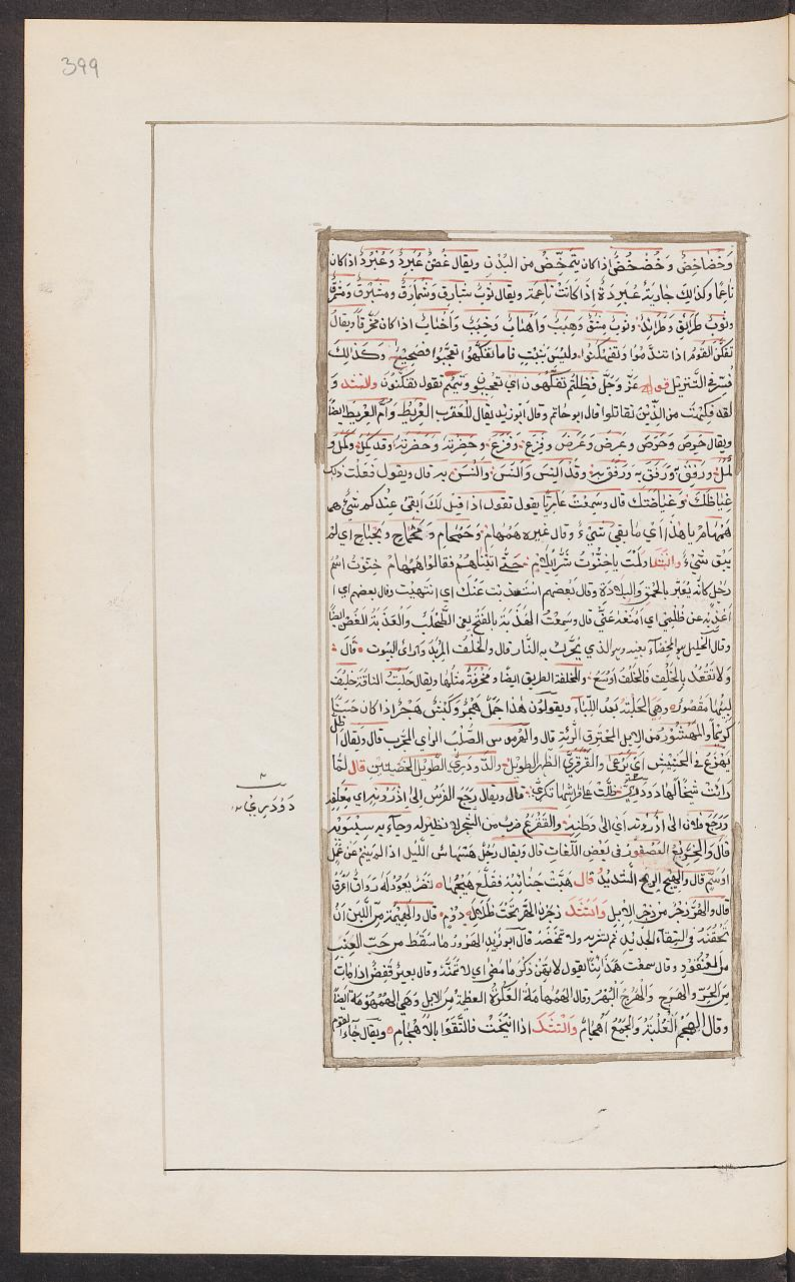 399
وَخُضَاخِضٌ وَخُضْخُضٌ اذا كان يتمخّض من البُدْنِ ويقال غُصْنٌ عُبَرِدٌ وَعُبْرُدٌ اذا كان
ناعِمًا وكذلك جارية عُبَرِدَةٌ اِذَا كَانَتْ نَاعِمَةً ويقال ثوْبٌ شبَارِق وَشَمَارِقٌ ومشبْرَقٌ وَمشمْرَقٌ
وثوبٌ طَرَائِق وَطَرَائِدُ وثوب مِشَقٌ وَهِبَبٌ وَاَهْبَابٌ وَخِبَبٌ وَاَخْبَابٌ اذا كان مُخَرَّقًا ويقالُ
تفَكَّنَ القَومُ اذا تندّمُوا وَتَفَكَّنُوا وليْسَ بِثَبْتٍ فاما تفَكَّهُوا تَعَجَّبُوا فصَحِيْحٌ وَكَذَلِكَ
فُسِّرَ في التَّنزيْل قوله عَزَّ وَجَلَّ فَظَلْتُمْ تَفَكَّهُونَ اي تَعْجَبُوْنَ وَتَمِيْمُ تقول تَفَكَّنُوْنَ وانشد وَ
لقد فكِهْتُ من الذّيْنَ تقاتلوا قال ابو حاتم وقال ابو زيد يقال للعَقرَب الغَرِيْطُ وَاُمُّ العِرْيَطِ ايضًا
ويقال حَوِصَ وَحَوَصَ وَعَرِضَ وَعَرَضَ وفَزِعَ وَفَزَعَ وحَضِرَتْهُ وَحَضَرَتْهُ وقد كَمِلَ وَكَمَلَ و
كَمُلَ ورَفِقَ به وَرَفَقَ به وَرَفُقَ به وَقَدْ اَنِسَ وَاَنَسَ وَاَنُسَ به قال ويقول فعَلْتُ ذلك
غِيَاظَكَ وَغَيَاضَتَكَ قال وسَمِعْتُ عَامِريًّا يقول تقول اذا قيل لكَ اَبَقِيَ عِنْدكم شَيْءٌ
هَمْهَامِ يا هذا اَيْ ما بقيَ شَيْءٌ وقال غيره هَمْهَامِ وَحَمْحَامِ وَمَحْمَاحِ وَبَحْبَاحِ اي لم
يَبْقَ شَيْءٌ وانشد اَولَمْتَ يا خِنَّوْتُ شَرَّ اِيْلَامِ حَتَّى اَتَيْنَاهُمْ فقالوا هَمْهَامْ خِنَّوْتُ اسْمُ
رَجُل كانه يُعَيَّر بالحُمْقِ وَالبِلَادَةِ وقال بَعْضهم استعذبت عَنْكَ اي انتهيْتُ وقال بعضهم اي
اَعْذِبْه عن ظُلمِي اي اَمْنَعْهُ عَنِّي قال وسَمِعْتُ العَذَبَةُ بالفَتْح يعني الطُحْلُبَ وَالعَذَبَةُ الغُصْنُ ايضًا
وقال الخليل الذي يُحَرَّكُ به النَّارُ قال وَالخَلْفُ المِرْبَدُ وَمَا ورَاءَ البُيوْتِ قال
وَلَا تَقْعُدْ بِالخَلْفِ فَالخَلْفُ اوْسَعُ والمخلفة الطريق ايضًا و مَخْرَفَةٌ مِثلُها ويقال حَلَبْتُ الناقَةَ خَلِيْفَ
لِبَئِهَا وَهِيَ الحَلْبَةُ بَعْدَ اللِّبَاءِ ويقولوْنَ هٰذا جَمَلٌ هَجْرٌ وَكَبْشٌ هَجْرٌ اذا كان حَسَنًا
كَرِيْمًا وَالمَهْشُوْرُ مِنَ الابل المُحْتَرِقُ الرِّئَةِ قال وَالقَرْمُوسي الصُّلْبُ الرأي المُجَرَّب قال ويقال
يَهْزَعُ في الحَشِيش اي يَرْعَى وَالقَرْقَرِيُّ الظَّهْر الطويْلُ وَالدَّوْدَرِيُّ الطَّوِيْلُ الخُصْيَتَيْنِ قال لمَّا
رَاَتْ شَيْخًا لَهَا دَوْدَرِيَّ ظلَّتْ قال ويقال رَجَعَ الفَرَسُ اِلَى اِدْرَوْنِهِ اي مِعْلَفِهِ
وَرَجَعَ فلان الى اِدْرَوْنِهِ اي الى وَطَنِهِ وَالقَفْزَعُ ضربٌ من الشجر لا نظير له وجاء به سِيْبَوَيْه
قال وَالخِرْنَوْبَعُ العُصْفُوْرُ في بَعْض اللغَاتِ قال ويقال رَجُلٌ هَتَمَا شُ اللَّيْل اذا لم يَنَمْ عَنْ عَمَلٍ
اَوْسَمَرٍ قال والهَيْجُ الرِيْحُ الشدِيْدُ قال هَبَّتْ جَنَائِبُهُ فَقلَّعَ هَيْجُهَا
قال والهِرُّ زَجْرٌ من زَجْرِ الابِل وَانشَدَ زجُرْنَ الهِرَّ تَحْتَ ظِلَالِ دَوْمٍ قال وَالهَمِيْمَةُ مِنَ اللَّبَنِ اَنْ
تَحْقُنَهُ في السِّقَاء الجديدِ ثم تشربه ولا تمخضه قال ابو زَيْد الهُرُوْر ما سَقَطَ من حَبّ العِنَب
مِنَ العُنْقُودِ وقال سَمِعْتُ هُذَليًّا يقول لا يمَنْ ذكرُ ما مَضَى اي لا تَمَنَّه وقال بعيرٌ قَفِصٌ اذا مَاتَ
مِنَ الحَرِّ وَالهَرَجِ وَالهَرَجُ البُهْرُ وقال الهَمْهَامَةُ العَكَرَةُ العظيمَةُ مِنَ الابِل وَهِيَ الهُمْهُوْمَةُ ايضًا
وقال الهَجْم العُلْبَةُ وَالجَمْعُ اَهْجَامٌ وَانشَدَ اذا اُنِيْخَتْ فالتقَوْا بالاَهْجَامِ ويقال جَاءَ القوم
دَوْدَرِيُّ